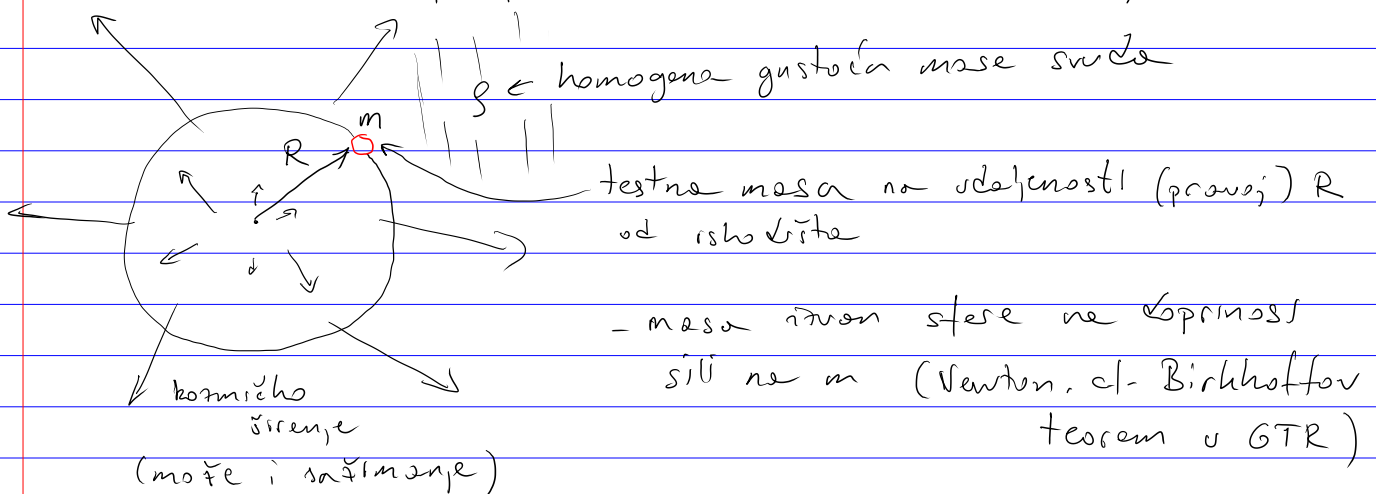 m
R
ρ ← homogena gustoća mase svuda
testna masa na udaljenosti (pravoj) R
od ishodišta
- masa izvan sfere ne doprinosi
sili na m (Newton, cf. Birkhoffov
teorem u GTR)
kozmičko
širenje
(može i sažimanje)